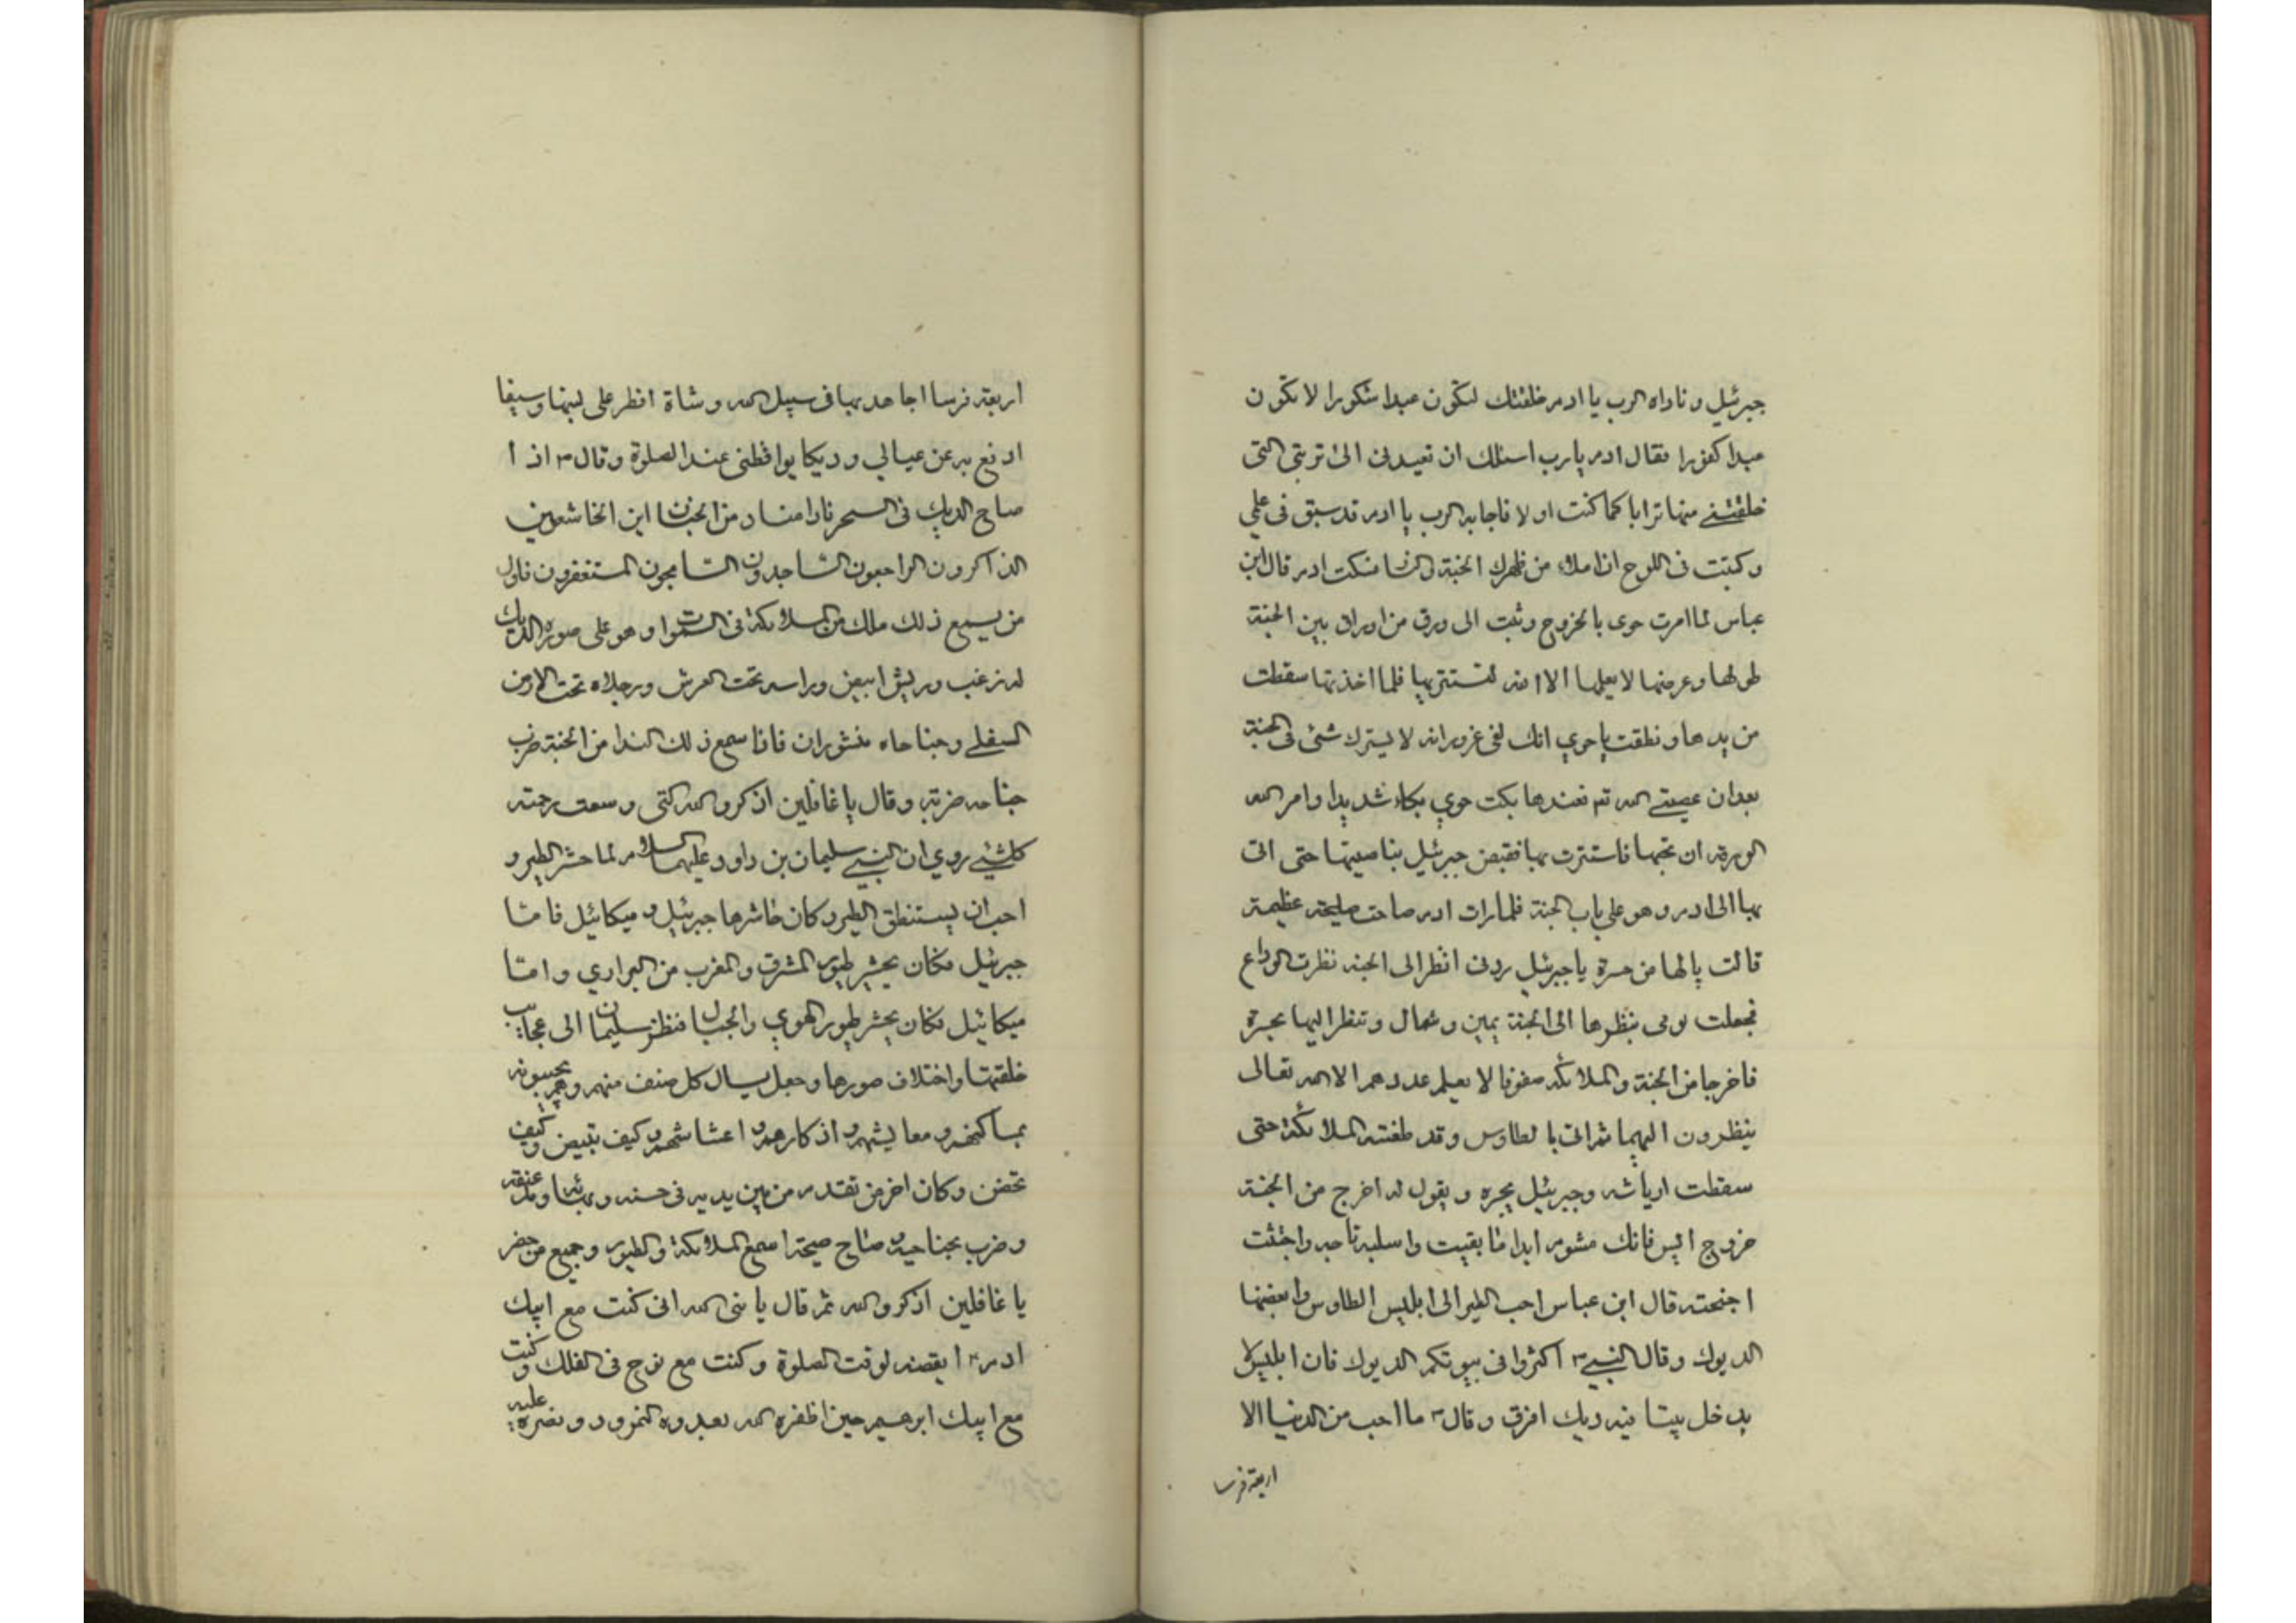 جبرئيل و ناداه الرب يا ادم خلقتك لتكون عبدا شكورا لا تكون
عبدا كفورا فقال ادم يا رب اسئلك ان تعيدنى الى تربتى التى
خلقتنے منها ترابا كما كنت اولا فاجابه الرب يا ادم قد سبق فى علمي
و كتبت فى اللوح ان املاء من ظهرك الجنة و النار فسكت ادم قال ابن
عباس لما امرت حوى بالخروج وثبت الى ورق من اوراق بين الجنة
طولها و عرضها لا يعلمها الا الله لتستتر بها فلما اخذتها سقطت
من يدها و نطقت يا حوي انك لفى غرور انه لا يسترك شئ فى الجنة
بعد ان عصيتے الله تم فعندها بكت حوي بكاء شديدا و امر الله
الورقة ان تجبها فاستترت بها فقبض جبرئيل بناصيتها حتى اتى
بها الى ادم و هو على باب الجنة فلما رات ادم صاحت صيحة عظيمة
قالت يا لها من حسرة يا جبرئيل ردنى انظر الى الجنه نظرت الوداع
فجعلت تومى بنظرها الى الجنة يمين و شمال و تنظر اليها بحسرة
فاخرجا من الجنة و الملائكه صفوفا لا يعلم عددهم الا الله تعالى
ينظرون اليهما ثم اتى بالطاوس و قد طعنته الملائكة حتى
سقطت ارياشه و جبرئيل يجره و يقول له اخرج من الجنة
خروج ايس فانك مشوم ابدا ما بقيت و اسلبه تاجه و اجتثت
اجنحته قال ابن عباس احب الطير الى ابليس الطاوس و ابغضها
الديوك و قال النبيے اكثروا فى بيوتكم الديوك فان ابليس لا
يدخل بيتا فيه ديك افرق و قال ما احب من الدنيا الا
اربعة فرسا
اربعة فرسا اجاهد بها فى سبيل الله و شاة افطر على لبنها و سيفا
ادفع به عن عيالي و ديكا يوقظنى عند الصلوة و قال اذا
صاح الديك فى السحر نادا مناد من الجنان اين الخاشعين
الذاكرون الراحبون الساجدون السامجون المستغفرون فاول
من يسمع ذلك ملك من الملائكة فى السموات و هو على صوره الديك
له زغب و ريش ابيض و راسه تحت العرش و رجلاه تحت الارض
السفلے و جناحاه منشوران فاذا سمع ذلك الندا من الجنة ضرب
جناحه ضربة و قال يا غافلين اذكرو الله التى وسعت رحمته
كلشئے روي ان النبيے سليمان بن داود عليهما السلام لما حشر الطير و
احب ان يستنطق الطيرو كان حاشرها جبرئيل و ميكائيل فامّا
جبرئيل فكان يحشر طيور المشرق و المغرب من البراري و امّا
ميكائيل فكان يحشر طيور الهوي و الجبال فنظر سليمان الى عجايب
خلقتها و اختلاف صورها و جعل يسال كل صنف منهم و هم يجيبونه
بمساكنهم و معايشهم و اذكارهم و اعشاشهم و كيف تبيض و كيف
تحضن و كان اخر من تقدم من بين يديه فى حسنه و بهائه و مد عنقه
و ضرب بجناحيه و صاح صيحة اسمع الملائكة و الطيور و جميع من حضر
يا غافلين اذكرو الله ثم قال يا نبى الله انى كنت مع ابيك
ادم ايقضه لوقت الصلوة و كنت مع نوح فى الفلك و كنت
مع ابيك ابرهيم حين اظفره الله بعدوه النمرود و نصره عليه